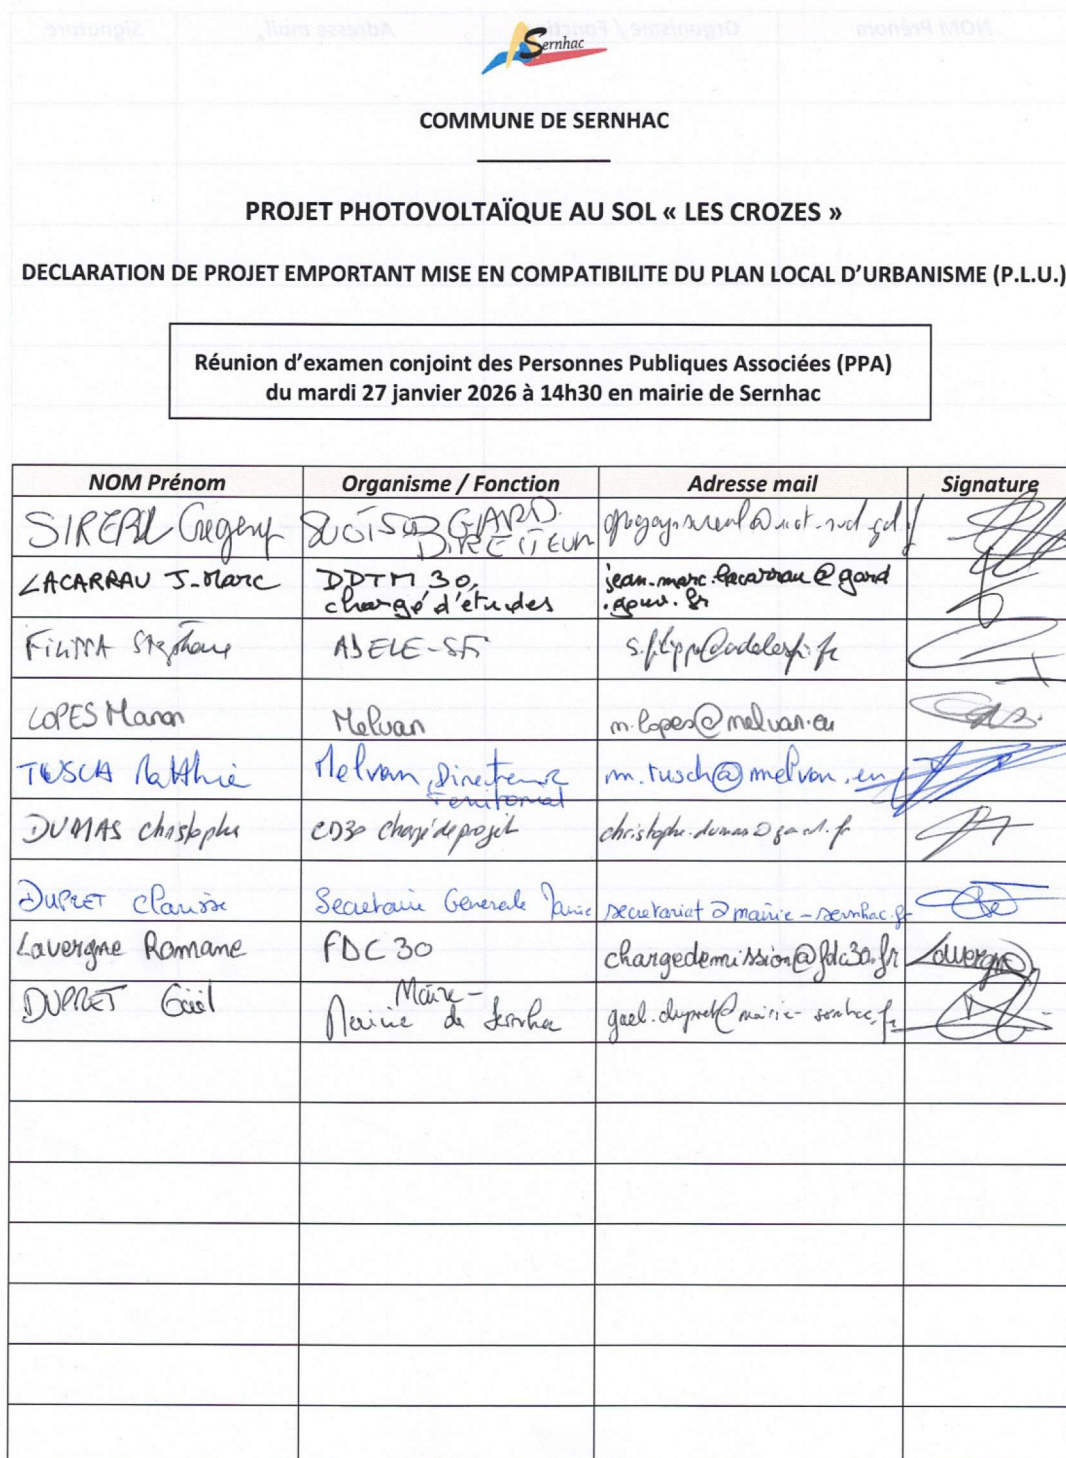 Sernhac
COMMUNE DE SERNHAC
PROJET PHOTOVOLTAÏQUE AU SOL « LES CROZES »
DECLARATION DE PROJET EMPORTANT MISE EN COMPATIBILITE DU PLAN LOCAL D'URBANISME (P.L.U.)
Réunion d'examen conjoint des Personnes Publiques Associées (PPA)
du mardi 27 janvier 2026 à 14h30 en mairie de Sernhac
NOM Prénom Organisme / Fonction Adresse mail Signature
GARD.
DIRECTEUR
LACARRAU J-Marc DDTM 30, jean-marc.lacarrau@gard
chargé d'études .gouv.fr
Stéphane
LOPES Manon Melvan m.lopes@melvan.eu
Melvan, Directeur
Territorial
DUMAS christophe CD30 chargé de projet christophe.dumas@gard.fr
DUPRET Clarisse Secretaire Generale Mairie secretariat@mairie-sernhac.fr
Lavergne Romane FDC 30 chargedemission@fdc30.fr Lavergne
DUPRET Gaël Maire-
Mairie de Sernhac gael.dupret@mairie-sernhac.fr